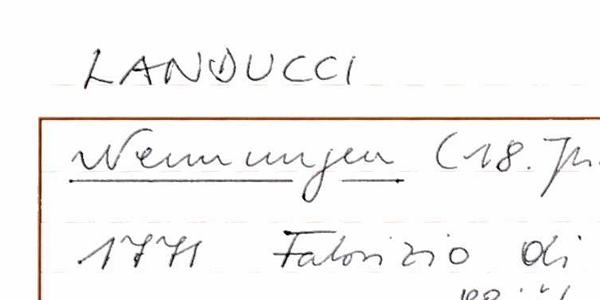 LANDUCCI
Nennungen (18. Jh.
1771 Fabrizio di